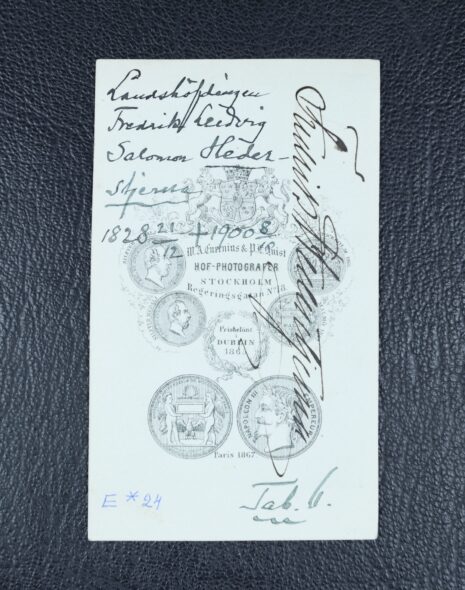 Landshöfdingen
Fredrik Ludvig
Salomon Heder-
stjerna
1828 21/12 † 1900 8/8
W.A. Eurenius & P.L. Quist
HOF-PHOTOGRAFER
STOCKHOLM
Regeringsgatan Nº 18.
Prisbelönt
DUBLIN
NAPOLEON III EMPEREUR
Paris 1867
E * 24
Tab. 6.